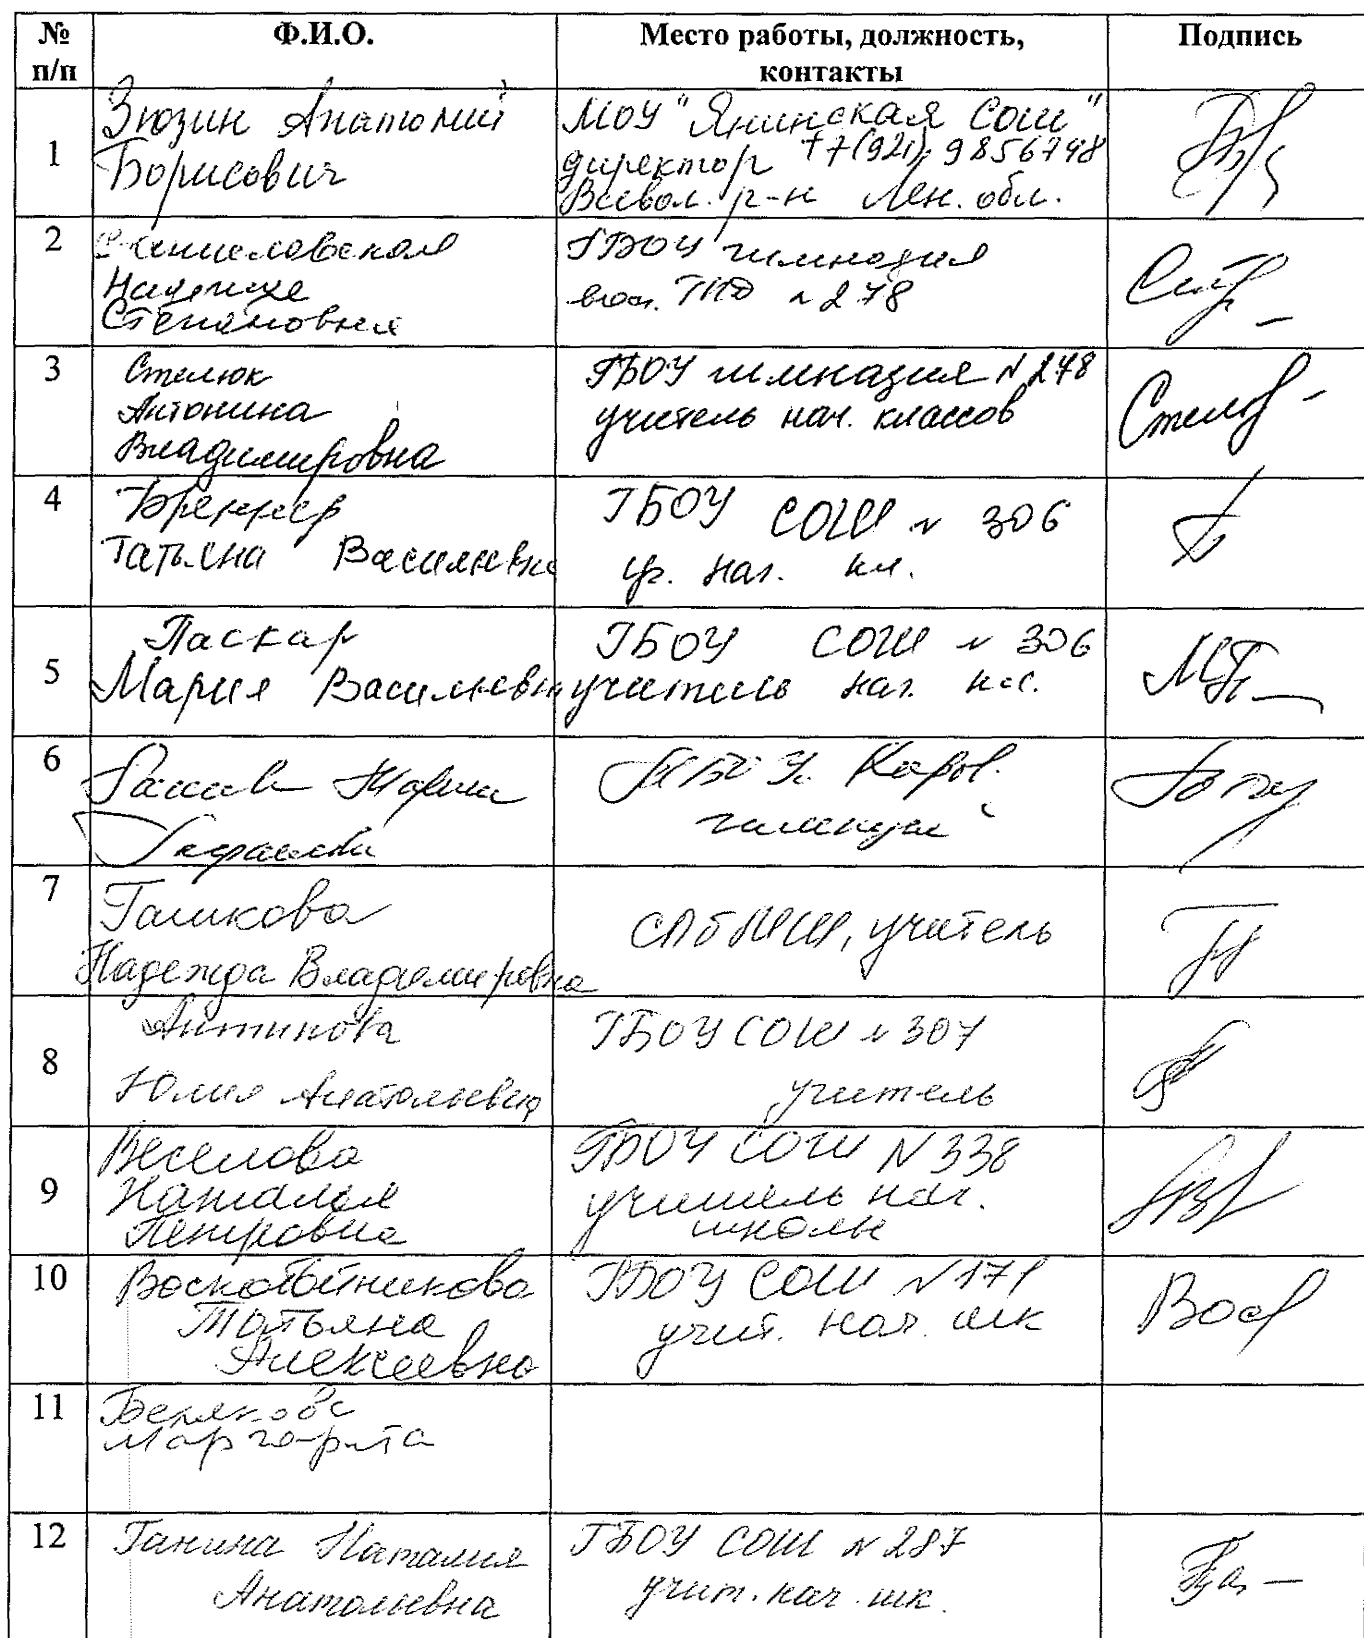 № п/п Ф.И.О. Место работы, должность, контакты Подпись
1
Зюзин Анатолий
Борисович
МОУ "Янинская СОШ"
директор +7(921) 9856748
Всевол. р-н Лен. обл.
2
Надежда
Степановна
ГБОУ гимназия
восп. ГПД № 278
3
Стелюк
Антонина
Владимировна
ГБОУ гимназия № 278
учитель нач. классов
4
Бреннер
Татьяна Васильевна
ГБОУ СОШ № 306
уч. нач. кл.
5
Паскар
Мария Васильевн
ГБОУ СОШ № 306
учитель нач. кл.
6
7
Гашкова
Надежда Владимировна
СПбМШ, учитель
8
Антипова
Юлия Анатольевна
ГБОУ СОШ № 307
учитель
9
Веселова
Наталья
Петровна
ГБОУ СОШ № 338
учитель нач.
школы
10
Воскобойникова
Татьяна
Алексеевна
ГБОУ СОШ № 171
учит. нач. шк
11
Маргарита
12
Ганина Наталия
Анатольевна
ГБОУ СОШ № 287
учит. нач. шк.